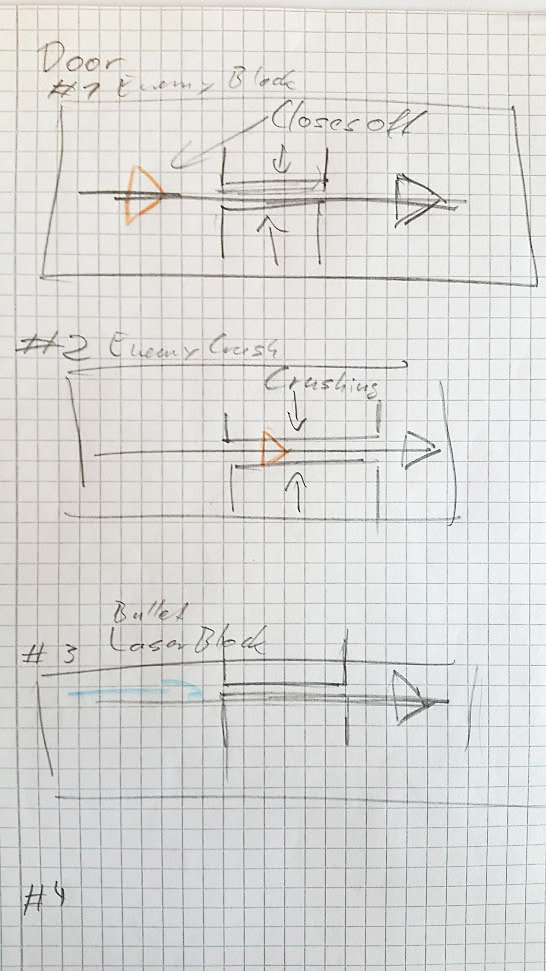 Door
#1 Enemy Block
Closes off
#2 Enemy Crush
Crushing
Bullet
#3 Laser Block
#4